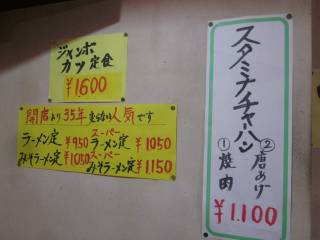 ジャンボ
カツ定食
¥1600
開店より35年変らない人気です
ラーメン定 ¥950 スーパーラーメン定 ¥1050
みそラーメン定 ¥1050 スーパーみそラーメン定 ¥1150
スタミナチャーハン
①焼肉
②唐あげ
¥1.100